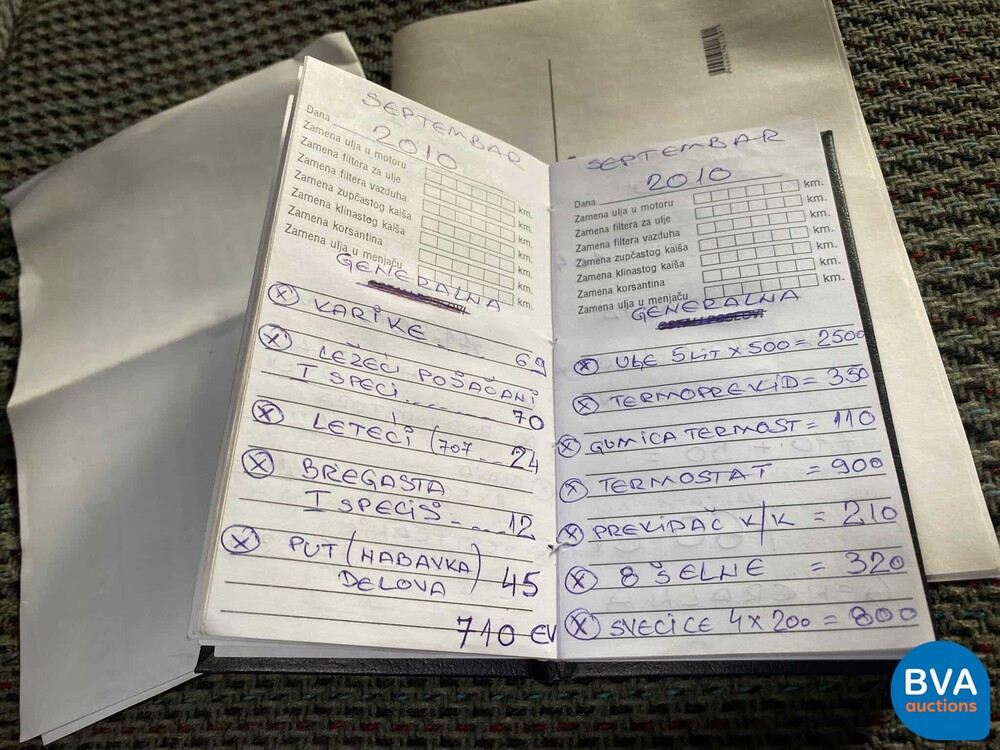 SEPTEMBAR
2010
Dana
Zamena ulja u motoru km.
Zamena filtera za ulje km.
Zamena filtera vazduha km.
Zamena zupčastog kaiša km.
Zamena klinastog kaiša km.
Zamena korsantina km.
Zamena ulja u menjaču km.
GENERALNA
KARIKE 69
LEŽEĆI POSAČANI
I SPECI 70
LETEĆI (707 24
BREGASTA
I SPECIŠ 12
PUT (NABAVKA) 45
DELOVA
710 EV
SEPTEMBAR
2010
Dana
Zamena ulja u motoru km.
Zamena filtera za ulje km.
Zamena filtera vazduha km.
Zamena zupčastog kaiša km.
Zamena klinastog kaiša km.
Zamena korsantina km.
Zamena ulja u menjaču km.
GENERALNA
OSTALI POSLOVI
ULJE 5 LIT X 500 = 2500
TERMOPREKID = 350
GUMICA TERMOST = 110
TERMOSTAT = 900
PREKIDAČ K/K = 210
8 ŠELNE = 320
SVEĆICE 4 X 200 = 800
BVA
auctions